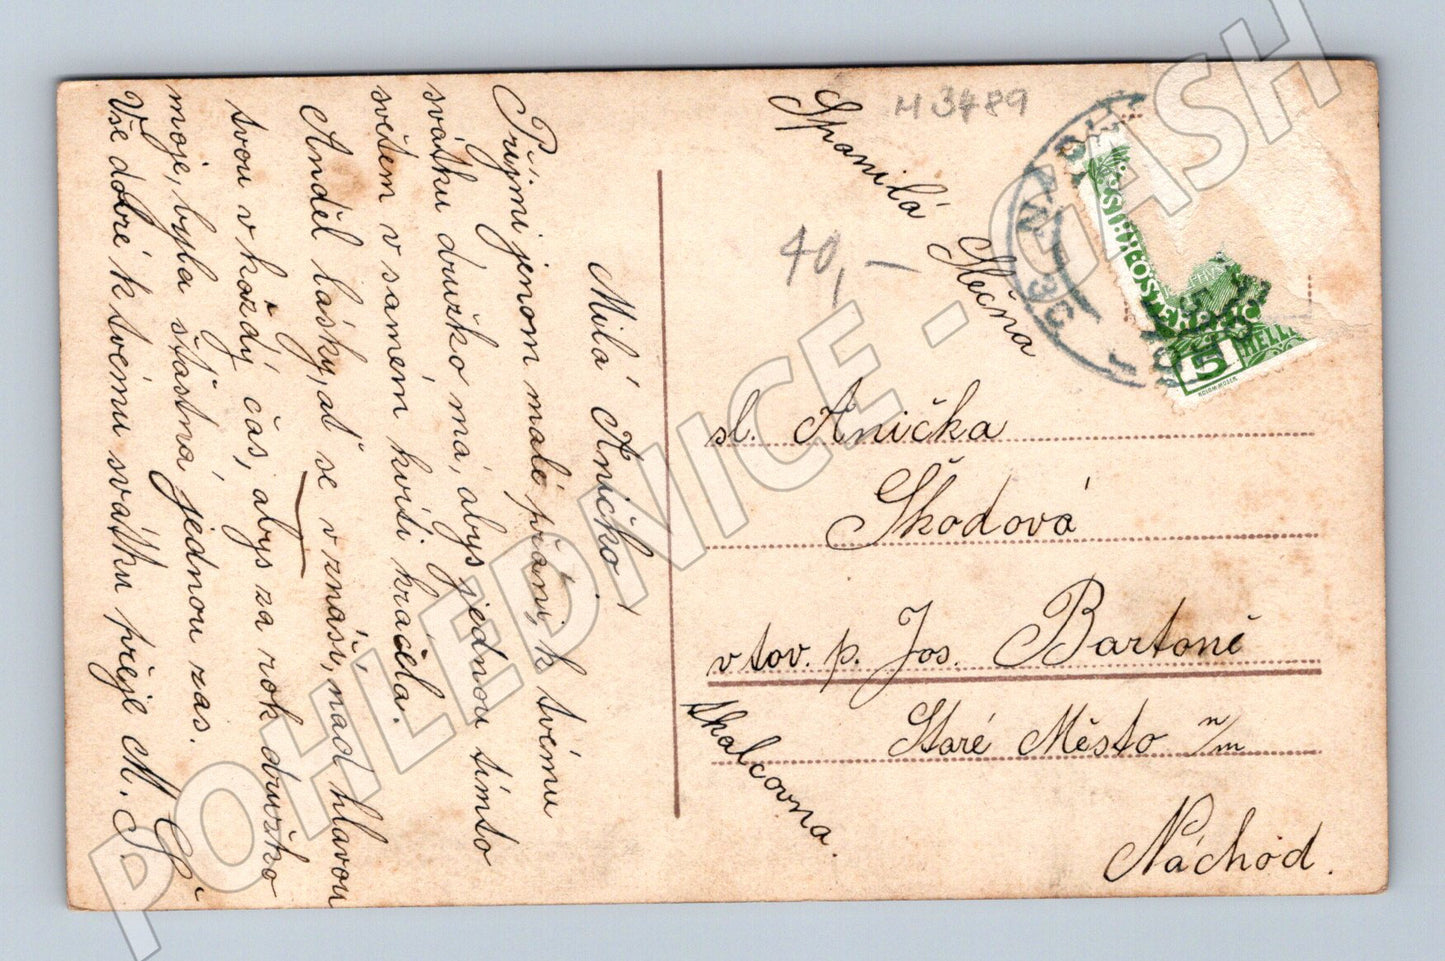 M 3489
40,-
Spanilá Slečna
sl. Anička
Škodová
v tov. p. Jos. Bartoně
Staré Město n/m
Skalcovna.
Náchod.
Milá Aničko!
Přijmi jenom malé přáni, k tvému
svátku družko má, abys jednou tímto
světem v samém kvítí kráčela.
Anděl lásky, ať se vznáší, nad hlavou
tvou v každý čas, abys za rok družko
moje, byla šťastná jednou zas.
Vše dobré k tvému svátku přeje M. Š.
5
HELLER
POHLEDNICE - CASH